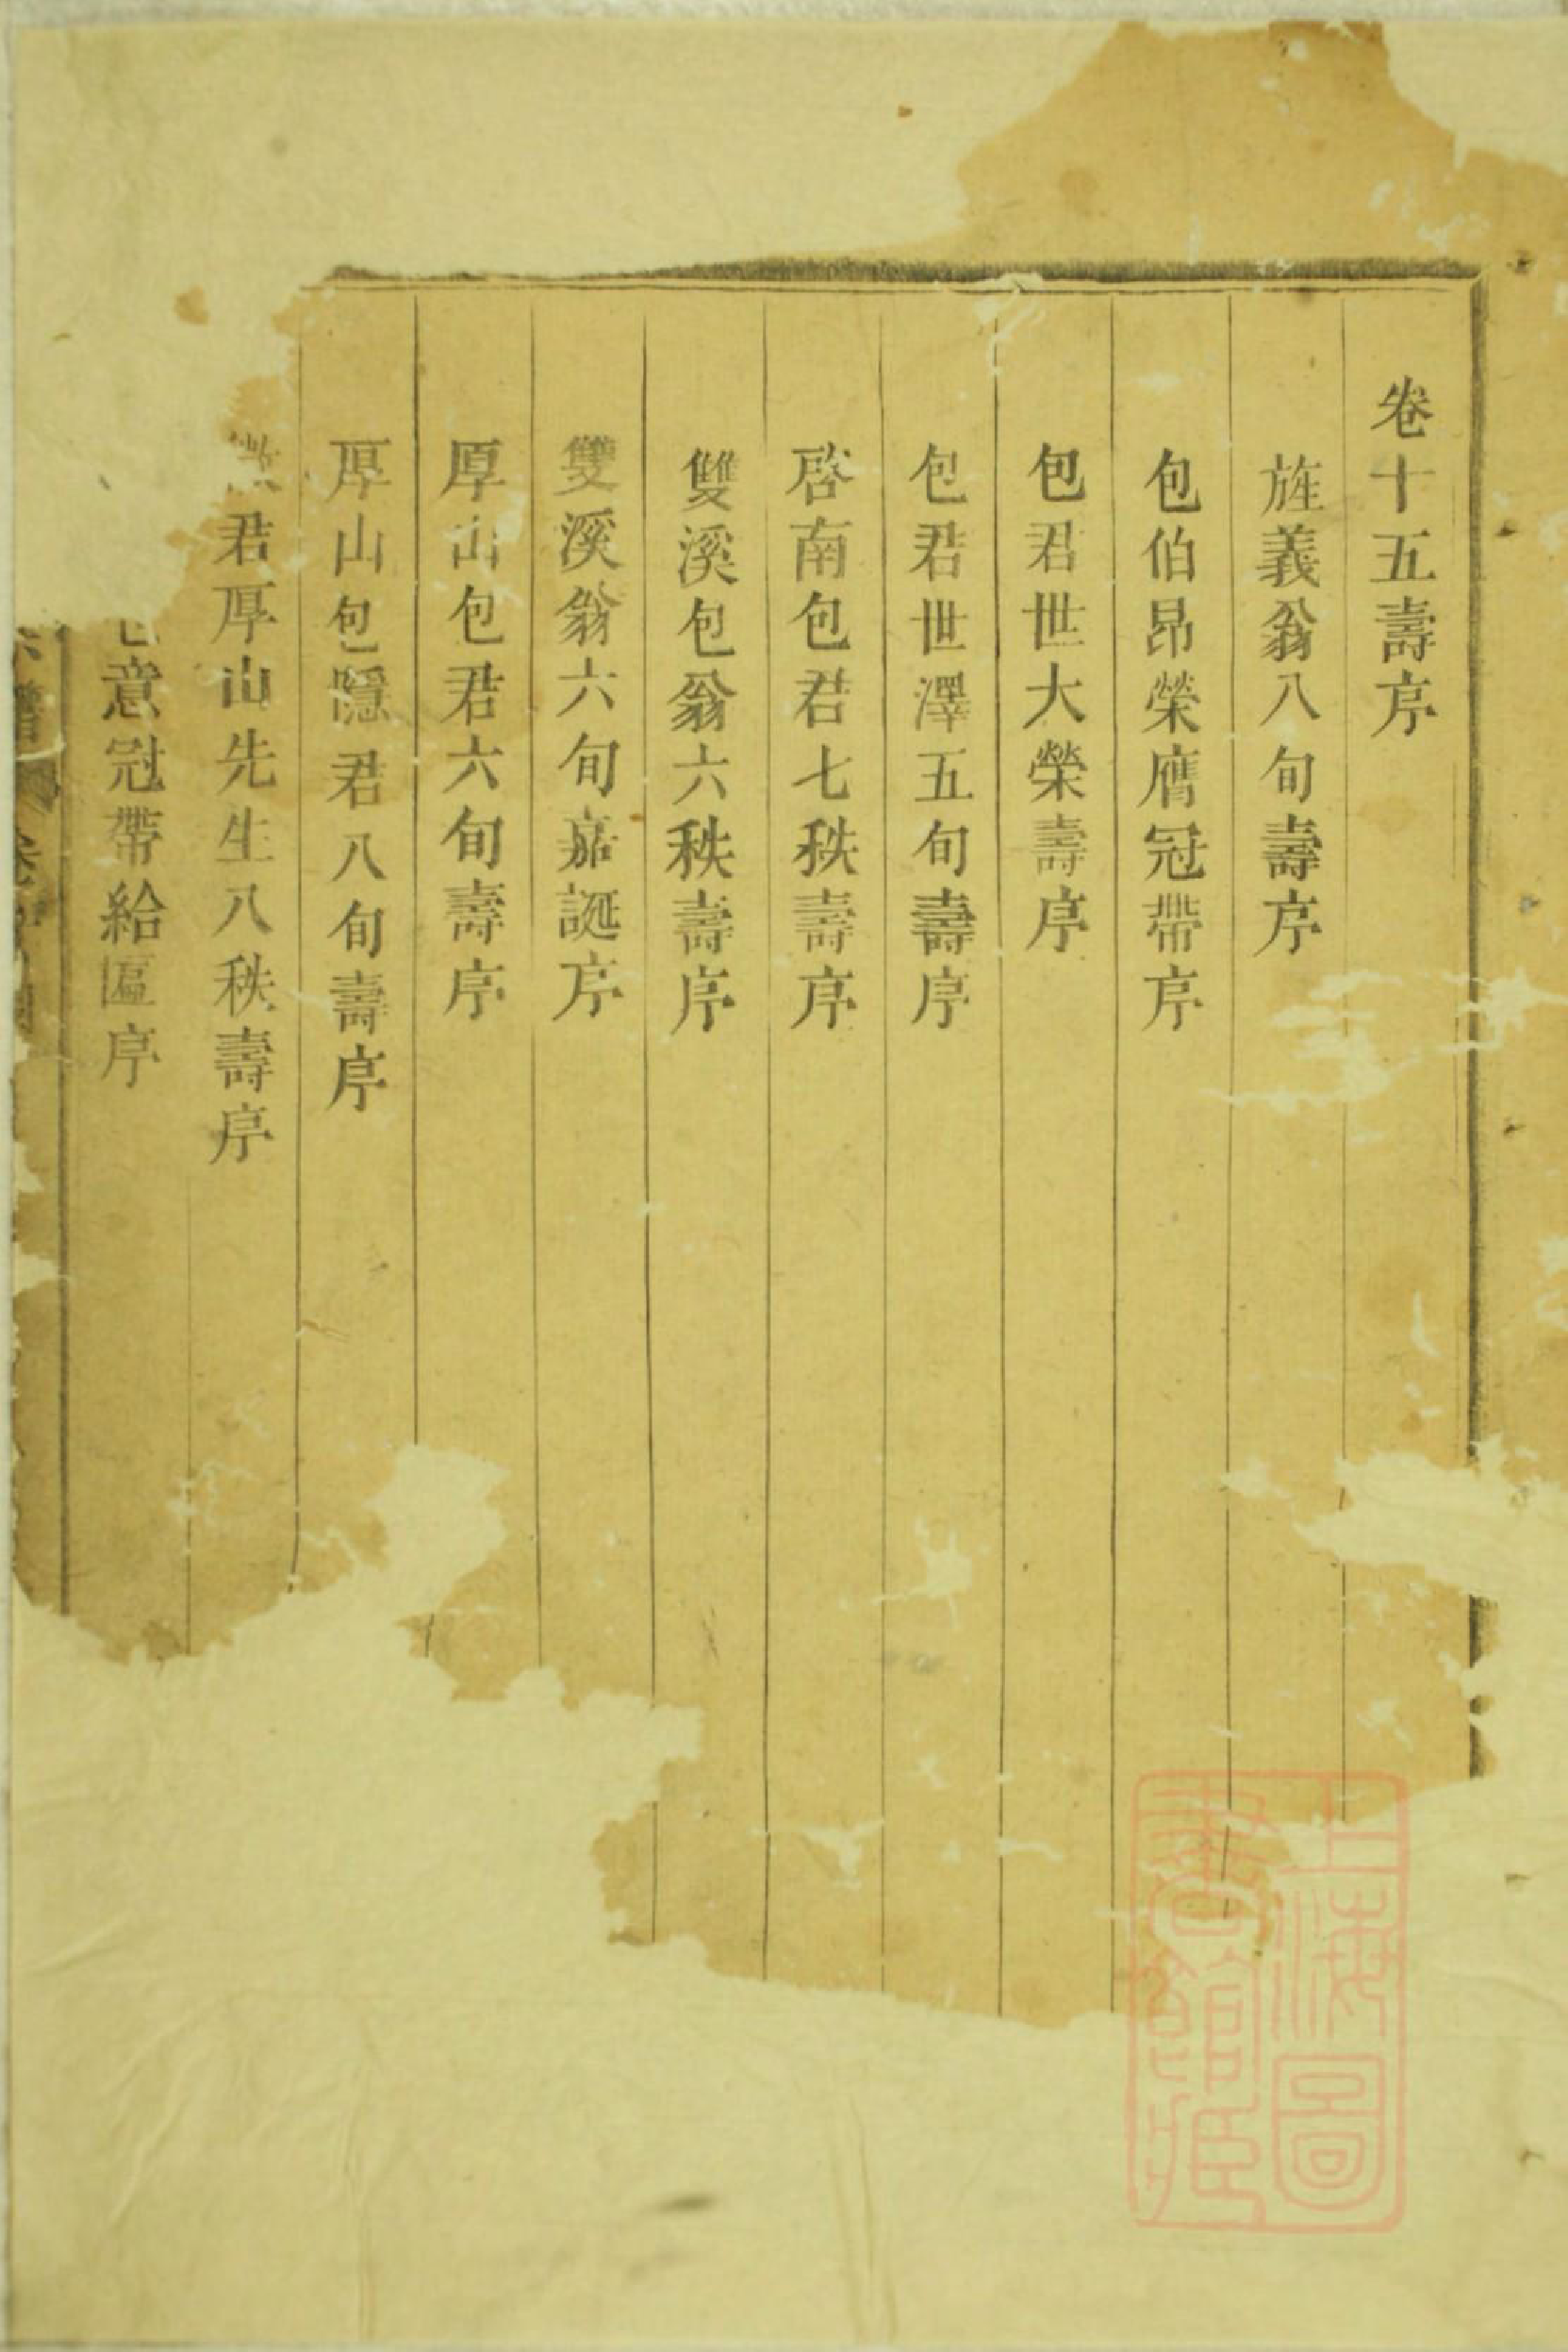 卷十五壽序
旌義翁八旬壽序
包伯昂榮膺冠帶序
包君世大榮壽序
包君世澤五旬壽序
啓南包君七秩壽序
雙溪包翁六秩壽序
雙溪翁六旬嘉誕序
厚山包君六旬壽序
厚山包隱君八旬壽序
君厚山先生八秩壽序
意冠帶給匾序
上海圖
書館藏